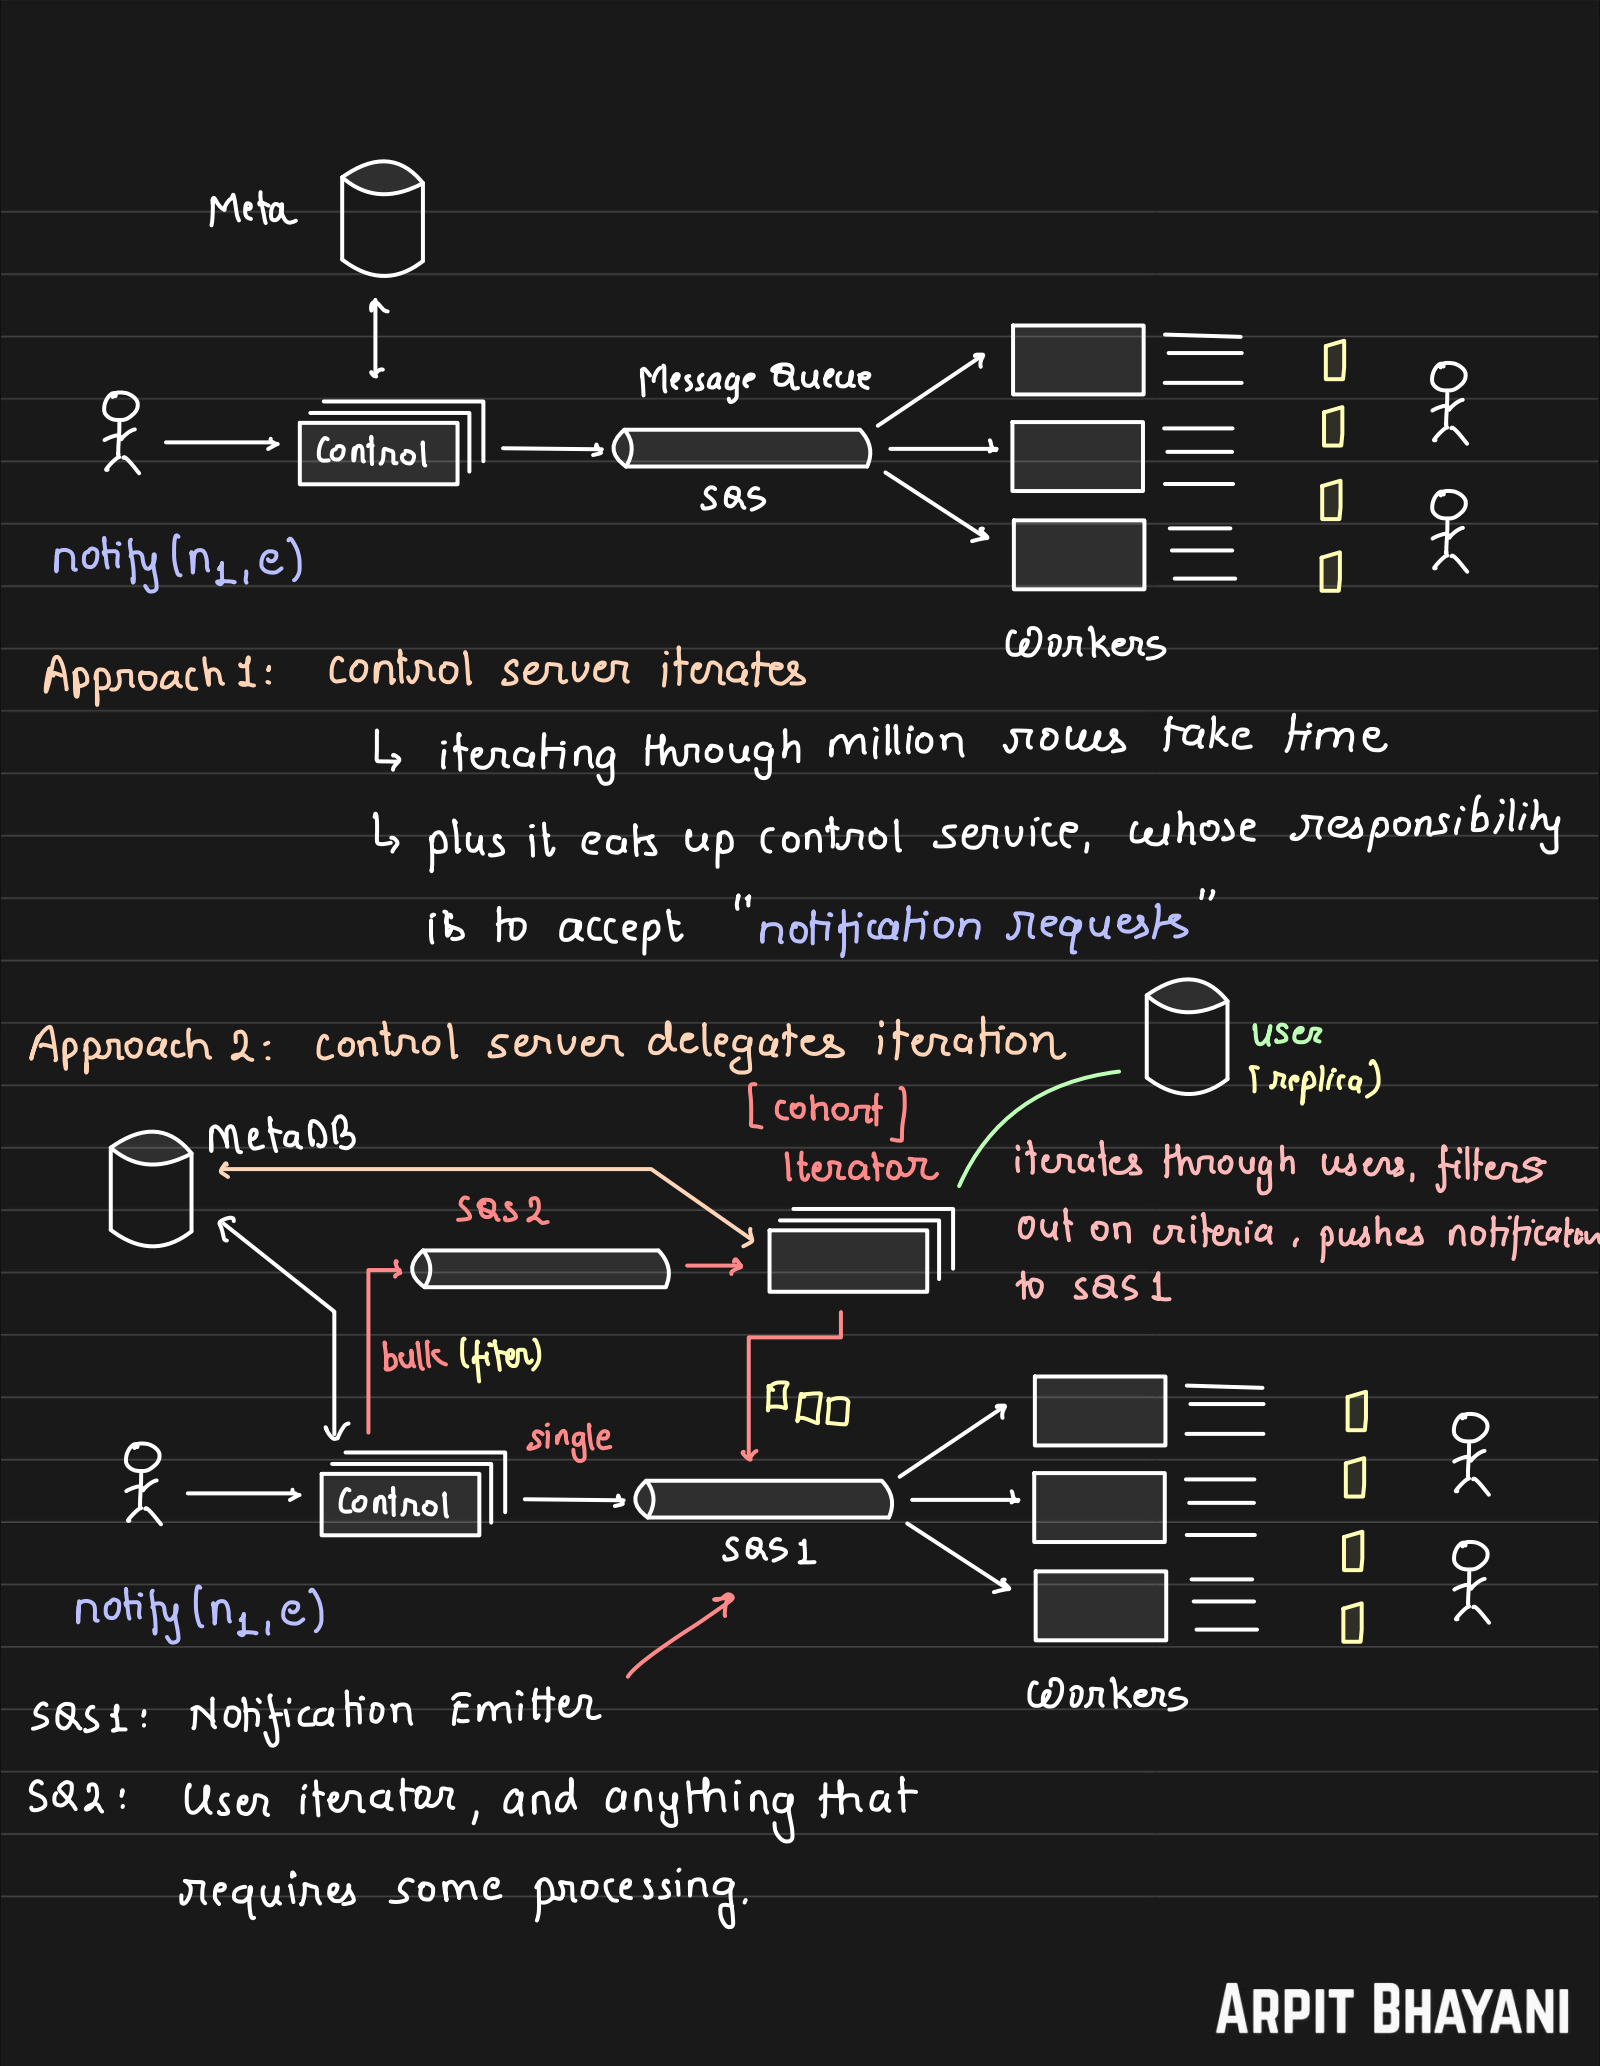 Meta
Message Queue
Control
SQS
notify(n1, e)
Workers
Approach 1: control server iterates
↳ iterating through million rows take time
↳ plus it eats up control service, whose responsibility
is to accept "notification requests"
Approach 2: control server delegates iteration
user
(replica)
[cohort]
Iterator
MetaDB
iterates through users, filters
out on criteria, pushes notification
to SQS1
SQS2
bulk (fiter)
single
Control
SQS1
notify(n1, e)
Workers
SQS1: Notification Emitter
SQ2: User iterator, and anything that
requires some processing.
ARPIT BHAYANI